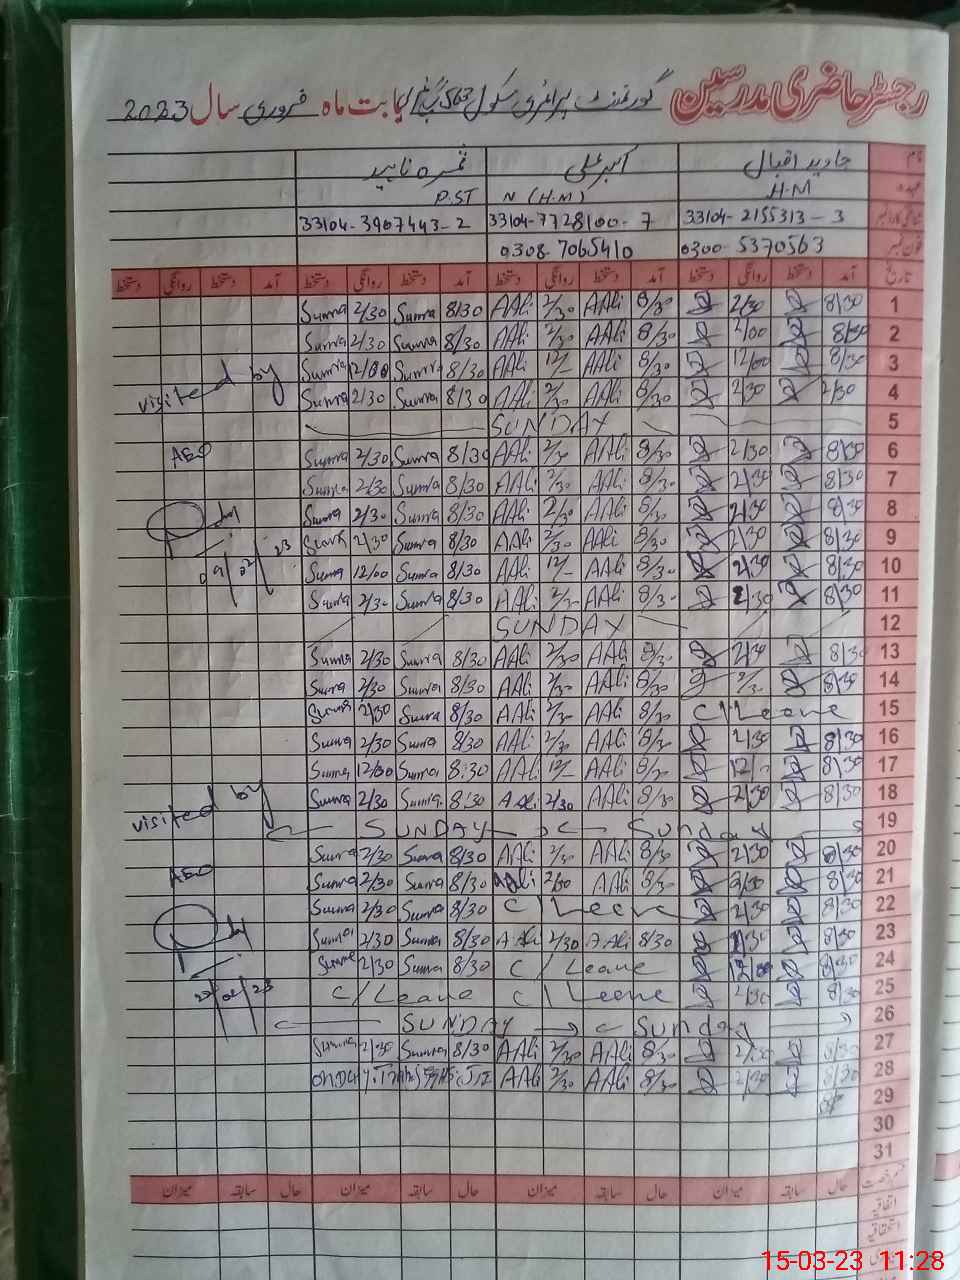 رجسٹر حاضری مدرسین گورنمنٹ پرائمری سکول 563 گ ب بابت ماہ فروری سال 2023
نام جاوید اقبال اکبر علی ثمرہ ناہید
عہدہ H.M N (H.M) P.ST
شناختی کارڈ نمبر 33104-2155313-3 33104-7728100-7 33104-3907443-2
فون نمبر 0300-5370563 0308-7065410
تاریخ آمد دستخط روانگی دستخط آمد دستخط روانگی دستخط آمد دستخط روانگی دستخط آمد دستخط روانگی دستخط
1 8/30 2/30 8/30 AAli 2/30 AAli 8/30 Sumra 2/30 Sumra
2 8/30 2/00 8/30 AAli 2/30 AAli 8/30 Sumra 2/30 Sumra
3 8/30 12/00 8/30 AAli 12/- AAli 8/30 Sumra 12/00 Sumra
4 2/30 2/30 8/30 AAli 2/30 AAli 8/30 Sumra 2/30 Sumra
visited by
5 SUNDAY
6 8/30 2/30 8/30 AAli 2/30 AAli 8/30 Sumra 2/30 Sumra
AEO
7 8/30 2/30 8/30 AAli 2/30 AAli 8/30 Sumra 2/30 Sumra
8 8/30 2/30 8/30 AAli 2/30 AAli 8/30 Sumra 2/30 Sumra
9 8/30 2/30 8/30 AAli 2/30 AAli 8/30 Sumra 2/30 Sumra
10 8/30 2/30 8/30 AAli 12/- AAli 8/30 Suma 12/00 Suma
09/02/23
11 8/30 2/30 8/30 AAli 2/30 AAli 8/30 Sumra 2/30 Sumra
12 SUNDAY
13 8/30 2/30 8/30 AAli 2/30 AAli 8/30 Sumra 2/30 Sumra
14 8/30 2/30 8/30 AAli 2/30 AAli 8/30 Sumra 2/30 Sumra
15 C/Leave 8/30 AAli 2/30 AAli 8/30 Sumra 2/30 Sumra
16 8/30 2/30 8/30 AAli 2/30 AAli 8/30 Sumra 2/30 Sumra
17 8/30 12/- 8/30 AAli 12/- AAli 8:30 Suma 12/00 Suma
18 8/30 2/30 8/30 AAli 2/30 A Ali 8:30 Sumra 2/30 Sumra
visited by
19 Sunday SUNDAY
20 8/30 2/30 8/30 AAli 2/30 AAli 8/30 Sumra 2/30 Sumra
21 8/30 2/30 8/30 AAli 2/30 AAli 8/30 Sumra 2/30 Sumra
AEO
22 8/30 2/30 C/Leave 8/30 Sumra 2/30 Sumra
23 8/30 2/30 8/30 A Ali 2/30 A Ali 8/30 Sumra 2/30 Sumra
24 8/30 12/00 C/Leave 8/30 Sumra 2/30 Sumra
25 8/30 2/30 C/Leave C/Leave
26 Sunday SUNDAY
27 8/30 2/30 8/30 AAli 2/30 AAli 8/30 Sumra 2/30 Sumra
28 8/30 2/30 8/30 AAli 2/30 AAli
29
30
31
حال سابقہ میزان حال سابقہ میزان حال سابقہ میزان حال سابقہ میزان
اتفاقیہ
استحقاقیہ
15-03-23 11:28